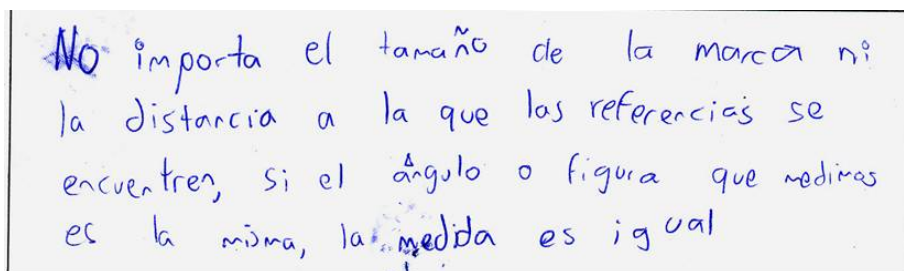 No importa el tamaño de la marca ni
la distancia a la que las referencias se
encuentren, si el ángulo o figura que medimos
es la misma, la medida es igual